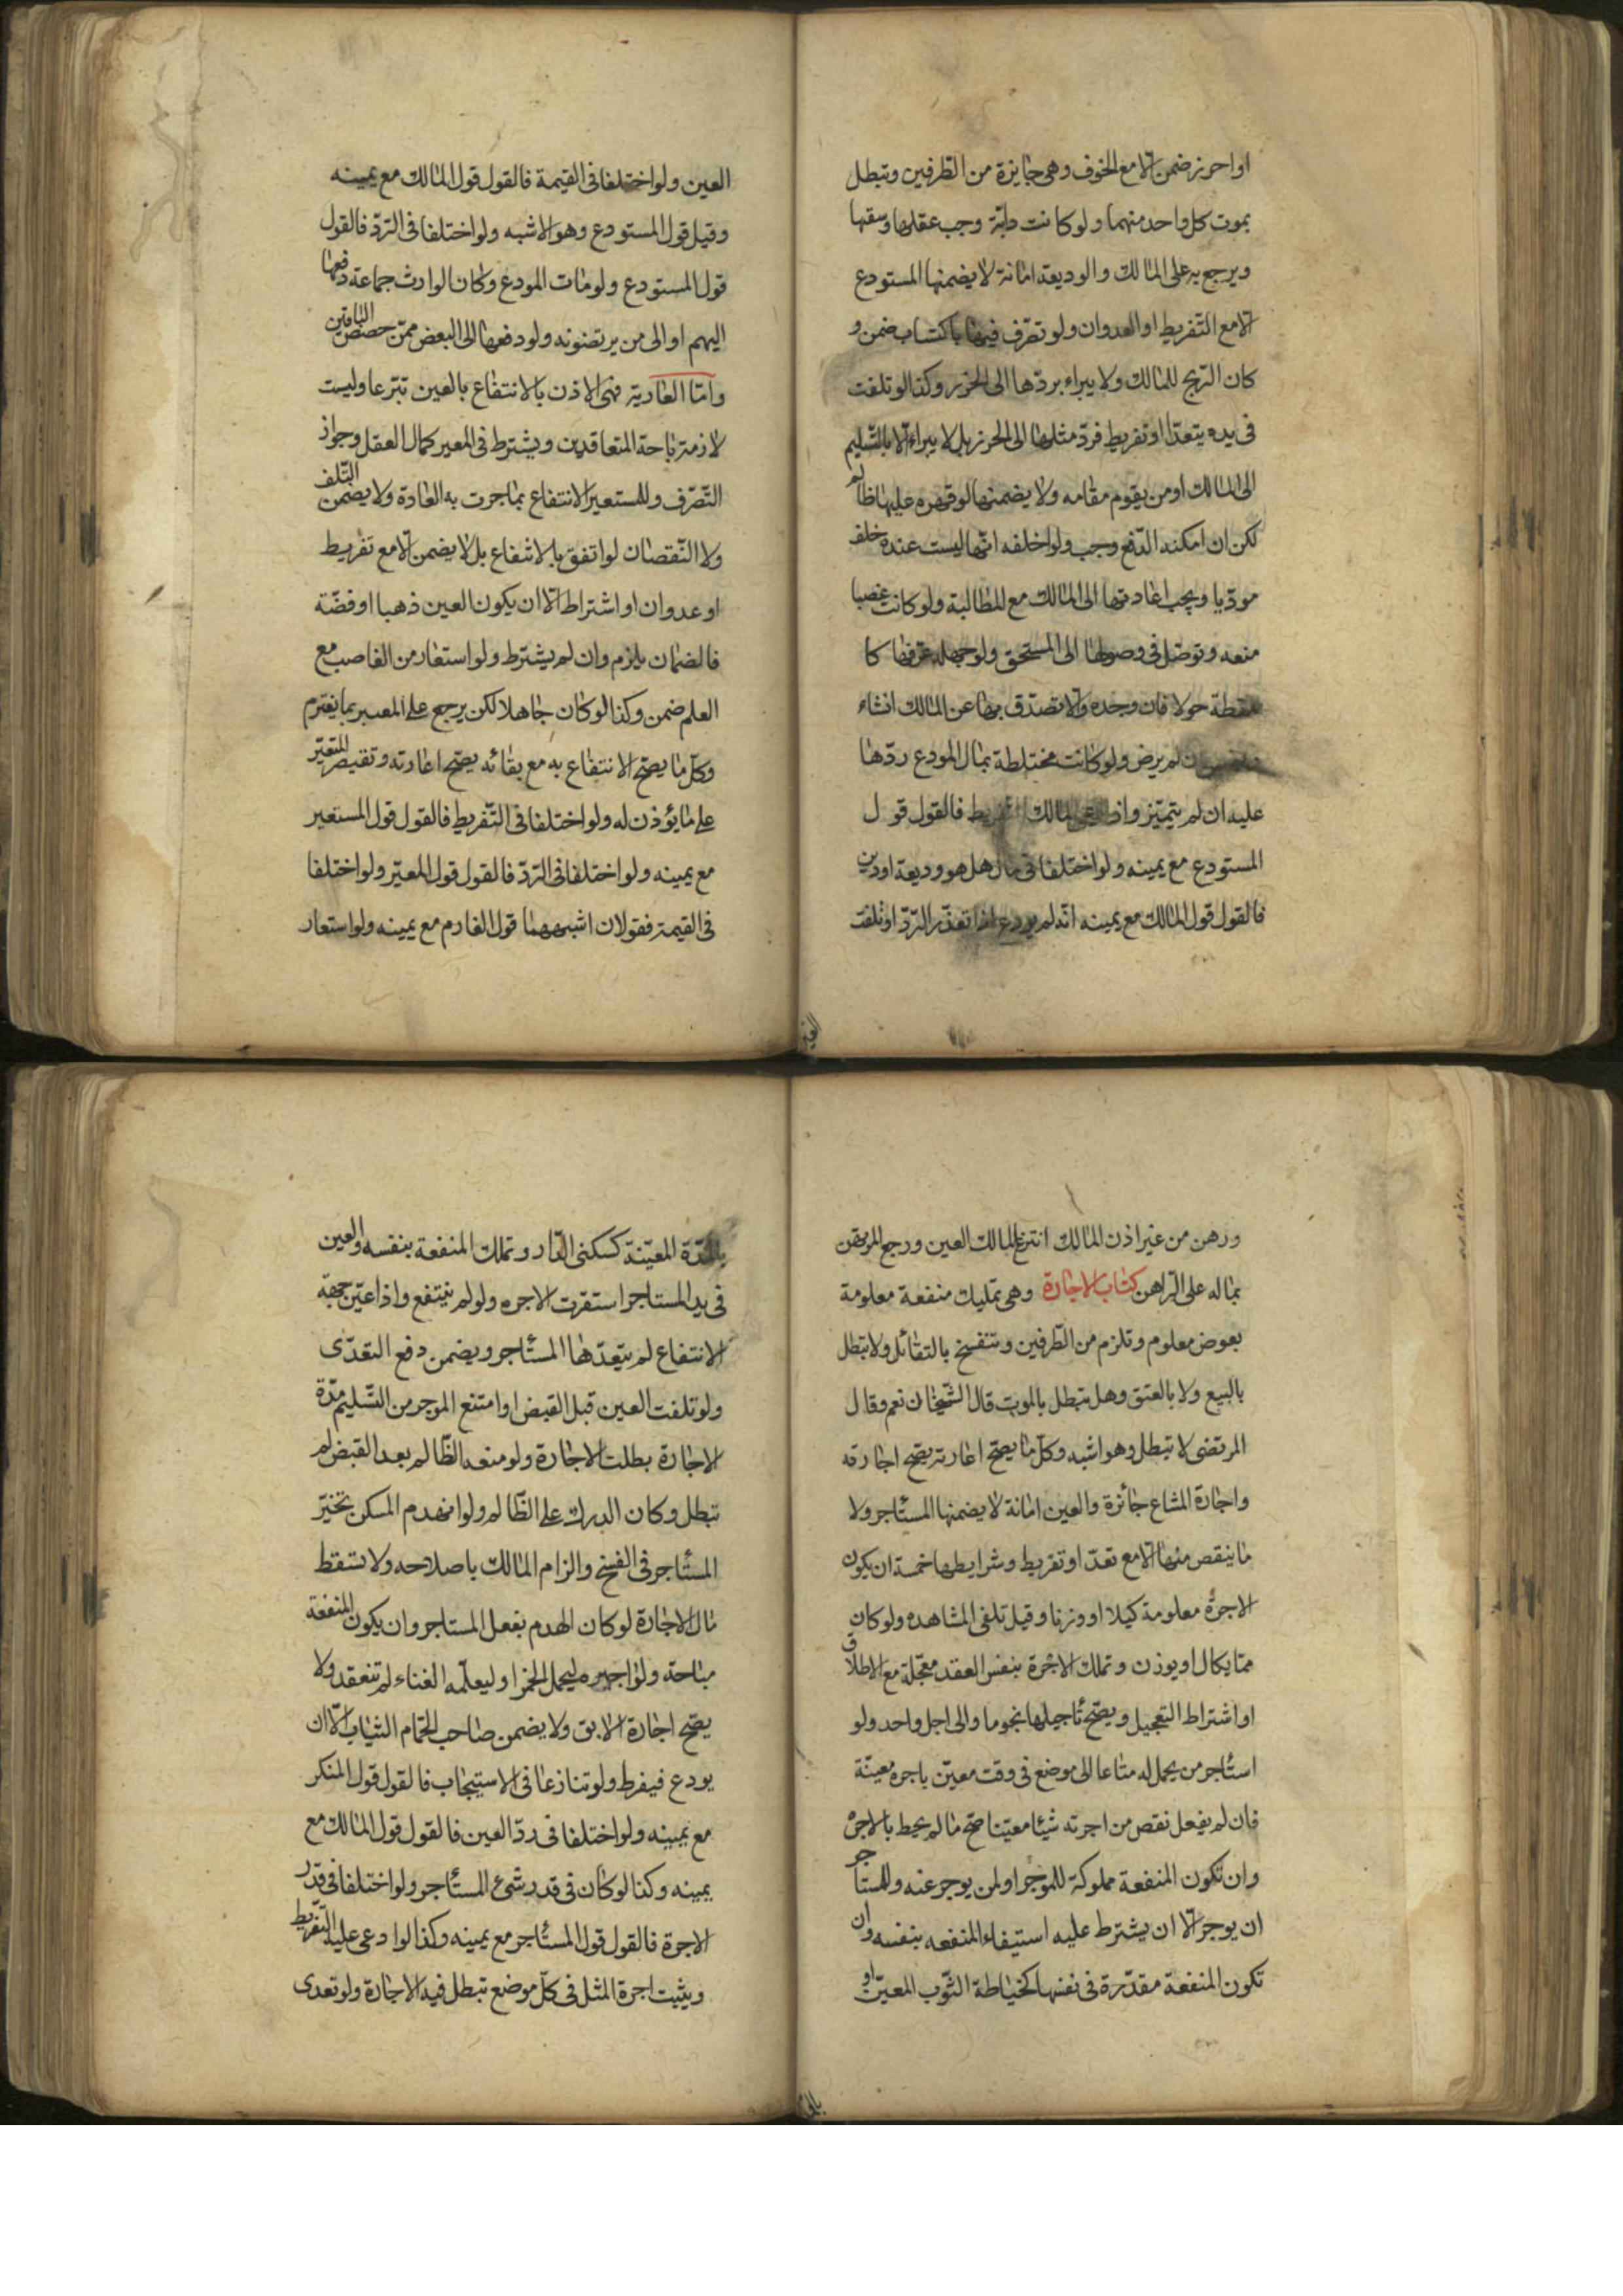 او احرز ضمن الا مع الخوف وهى جايزة من الطرفين وتبطل
بموت كل واحد منهما ولو كانت دابّة وجب عقلها وسقيها
ويرجع به على المالك والوديعة امانة لا يضمنها المستودع
الا مع التّفريط او العدوان ولو تصرّف فيها باكتساب ضمن و
كان الربح للمالك ولا يبراء بردّها الى الحرز وكذا لو تلفت
فى يده بتعدّ او تفريط فردّ مثلها الى الحرز بل لا يبراء الا بالتّسليم
الى المالك او من يقوم مقامه ولا يضمنها لو قهره عليها ظالم
لكن ان امكنه الدّفع وجب ولو احلفه انّها ليست عنده حلف
مورّيا ويجب اعادتها الى المالك مع المطالبة ولو كانت غصبا
منعه وتوصّل فى وصولها الى المستحق ولو جهله عرّفها كا
للقطة حولا فان وجده والا تصدّق بها عن المالك ان شاء
ان لم يرض ولو كانت مختلطة بمال المودع ردّها
عليه ان لم يتميّز واذا ادعى المالك التفريط فالقول قول
المستودع مع يمينه ولو اختلفا فى مال هل هو وديعة او دين
فالقول قول المالك مع يمينه انّه لم يودع اذا تعذّر الردّ او تلفت
العين
العين ولو اختلفا فى القيمة فالقول قول المالك مع يمينه
وقيل قول المستودع وهو الاشبه ولو اختلفا فى الردّ فالقول
قول المستودع ولو مات المودع وكان الوارث جماعة دفعها
اليهم او الى من يرتضونه ولو دفعها الى البعض ضمن حصص الباقين
وامّا العارية فهى الاذن بالانتفاع بالعين تبرّعا وليست
لازمة باحة المتعاقدين ويشترط فى المعير كمال العقل وجواز
التّصرّف وللمستعير الانتفاع بما جرت به العادة ولا يضمن التّلف
ولا النّقصان لو اتفق بالانتفاع بل لا يضمن الا مع تفريط
او عدوان او اشتراط الا ان يكون العين ذهبا او فضّة
فالضمان يلزم وان لم يشترط ولو استعار من الغاصب مع
العلم ضمن وكذا لو كان جاهلا لكن يرجع على المعير بما يغترم
وكلّ ما يصحّ الانتفاع به مع بقائه يصحّ اعارته وتقتصر المستعير
على ما يؤذن له ولو اختلفا فى التّفريط فالقول قول المستعير
مع يمينه ولو اختلفا فى الردّ فالقول قول المعير ولو اختلفا
فى القيمة فقولان اشبههما قول الغارم مع يمينه ولو استعار
ورهن من غير اذن المالك انتزع المالك العين ورجع المرتهن
بماله على الراهن كتاب الاجارة وهى تمليك منفعة معلومة
بعوض معلوم وتلزم من الطّرفين وتنفسخ بالتقائل ولا تبطل
بالبيع ولا بالعتق وهل تبطل بالموت قال الشّيخان نعم وقال
المرتضى لا تبطل وهو اشبه وكلّ ما يصحّ اعارته يصحّ اجارته
واجارة المشاع جائزة والعين امانة لا يضمنها المستأجر ولا
ما ينقص منها الا مع تعدّ او تفريط وشرايطها خمسة ان يكون
الاجرة معلومة كيلا او وزنا وقيل تلفى المشاهده ولو كان
ممّا يكال او يوزن وتملك الاجرة بنفس العقد معجّلة مع الاطلاق
او اشتراط التعجيل ويصحّ تأجيلها نجوما والى اجل واحد ولو
استأجر من يحمل له متاعا الى موضع فى وقت معيّن باجره معيّنة
فان لم يفعل نقص من اجرته شيئا معيّنا صحّ ما لم يحط بالاجره
وان تكون المنفعة مملوكة للموجر او لمن يوجر عنه وللمستأجر
ان يوجر الا ان يشترط عليه استيفاء المنفعه بنفسه وان
تكون المنفعة مقدّرة فى نفسها كخياطة الثّوب المعيّن او
بالمدّة
بالمدّة المعيّنة كسكنى الدّار وتملك المنفعة بنفسه والعين
فى يد المستاجر استقرت الاجره ولو لم ينتفع واذا عيّن جهة
الانتفاع لم يتعدّها المستأجر ويضمن دفع التعدّى
ولو تلفت العين قبل القبض او امتنع الموجر من التّسليم مدّة
الاجارة بطلت الاجارة ولو منعه الظّالم بعد القبض لم
تبطل وكان الدرك على الظّالم ولو انهدم المسكن تخيّر
المستأجر فى الفسخ والزام المالك باصلاحه ولا تسقط
مال الاجارة لو كان الهدم بفعل المستاجر وان يكون المنفعة
مباحة ولو اجره ليحمل الخمر او ليعلّمه الغناء لم تنعقد ولا
يصحّ اجارة الابق ولا يضمن صاحب الحمّام الثياب الّا ان
يودع فيفرط ولو تنازعا فى الاستيجاب فالقول قول المنكر
مع يمينه ولو اختلفا فى ردّ العين فالقول قول المالك مع
يمينه وكذا لو كان فى قدر شىء المستأجر ولو اختلفا فى قدر
الاجرة فالقول قول المستأجر مع يمينه وكذا لو ادعى عليه التّفريط
ويثبت اجرة المثل فى كلّ موضع تبطل فيه الاجارة ولو تعدى